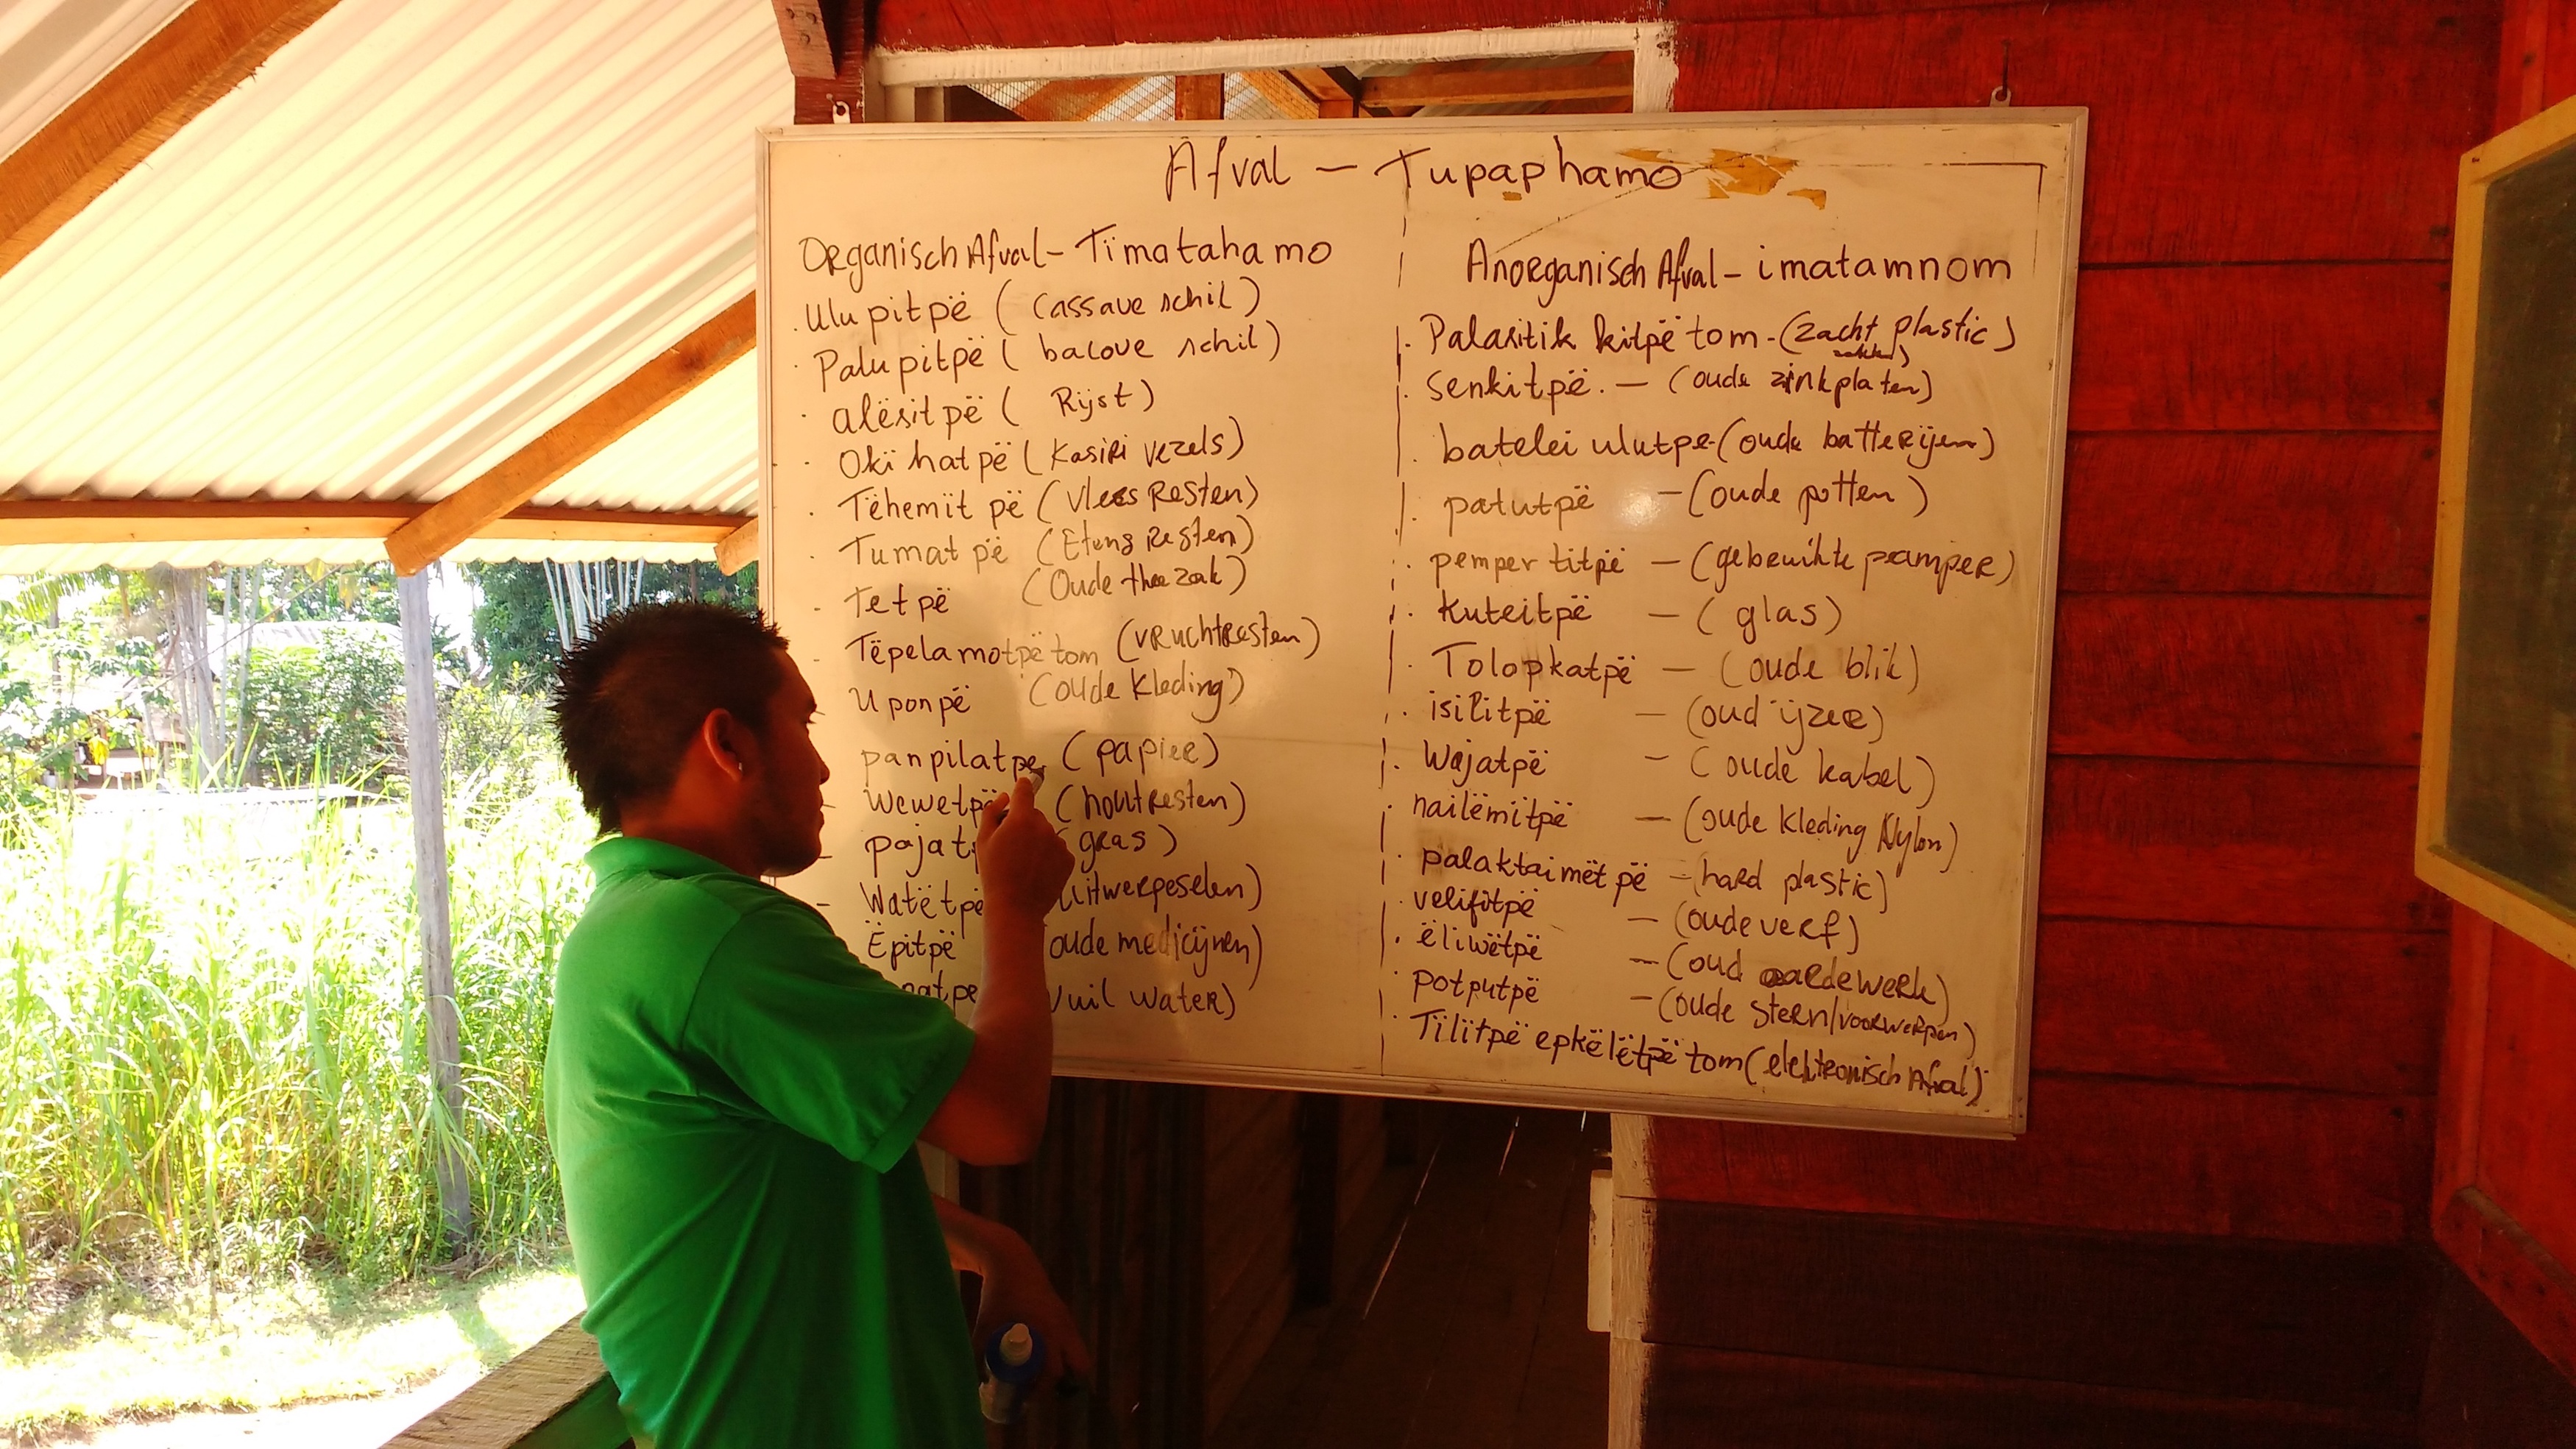 Afval – Tupaphamo
Organisch Afval – Tïmatahamo
. Ulu pitpë ( Cassave schil )
. Palu pitpë ( bacove schil )
. alësit pë ( Rijst )
. Okï hatpë ( Kasiri vezels )
. Tëhemït pë ( vlees Resten )
. Tumat pë ( Etens Resten )
- Tet pë ( Oude thee zak )
- Tëpelamotpë tom ( vruchtresten )
- Uponpë ( oude kleding )
panpilatpe ( papier )
- Wewetpë ( houtresten )
- pajatp ( gras )
- Watëtpë uitwerpeselen )
Ëpitpë oude medicijnen )
natpe vuil water )
Anorganisch Afval – imatamnom
. Palasitik kitpë tom - ( zacht plastic )
. senkitpë. – ( oude zinkplaten )
. batelei ulutpe - ( oude batterijen )
. patutpë – ( oude potten )
. pemper titpë – ( gebruikte pamper )
. Kuteitpë – ( glas )
. Tolopkatpë – ( oude blik )
. isilitpë – ( oud ijzer )
. Wajatpë – ( oude kabel )
. nailëmïtpë – ( oude kleding Nylon )
. palaktaimët pë – ( hard plastic )
. velifitpë – ( oude verf )
. ëliwëtpë – ( oud aardewerk )
. potputpë – ( oude stern/voorwerpen )
. Tïlïtpë epkëlëtpë tom ( elektronisch Afval )